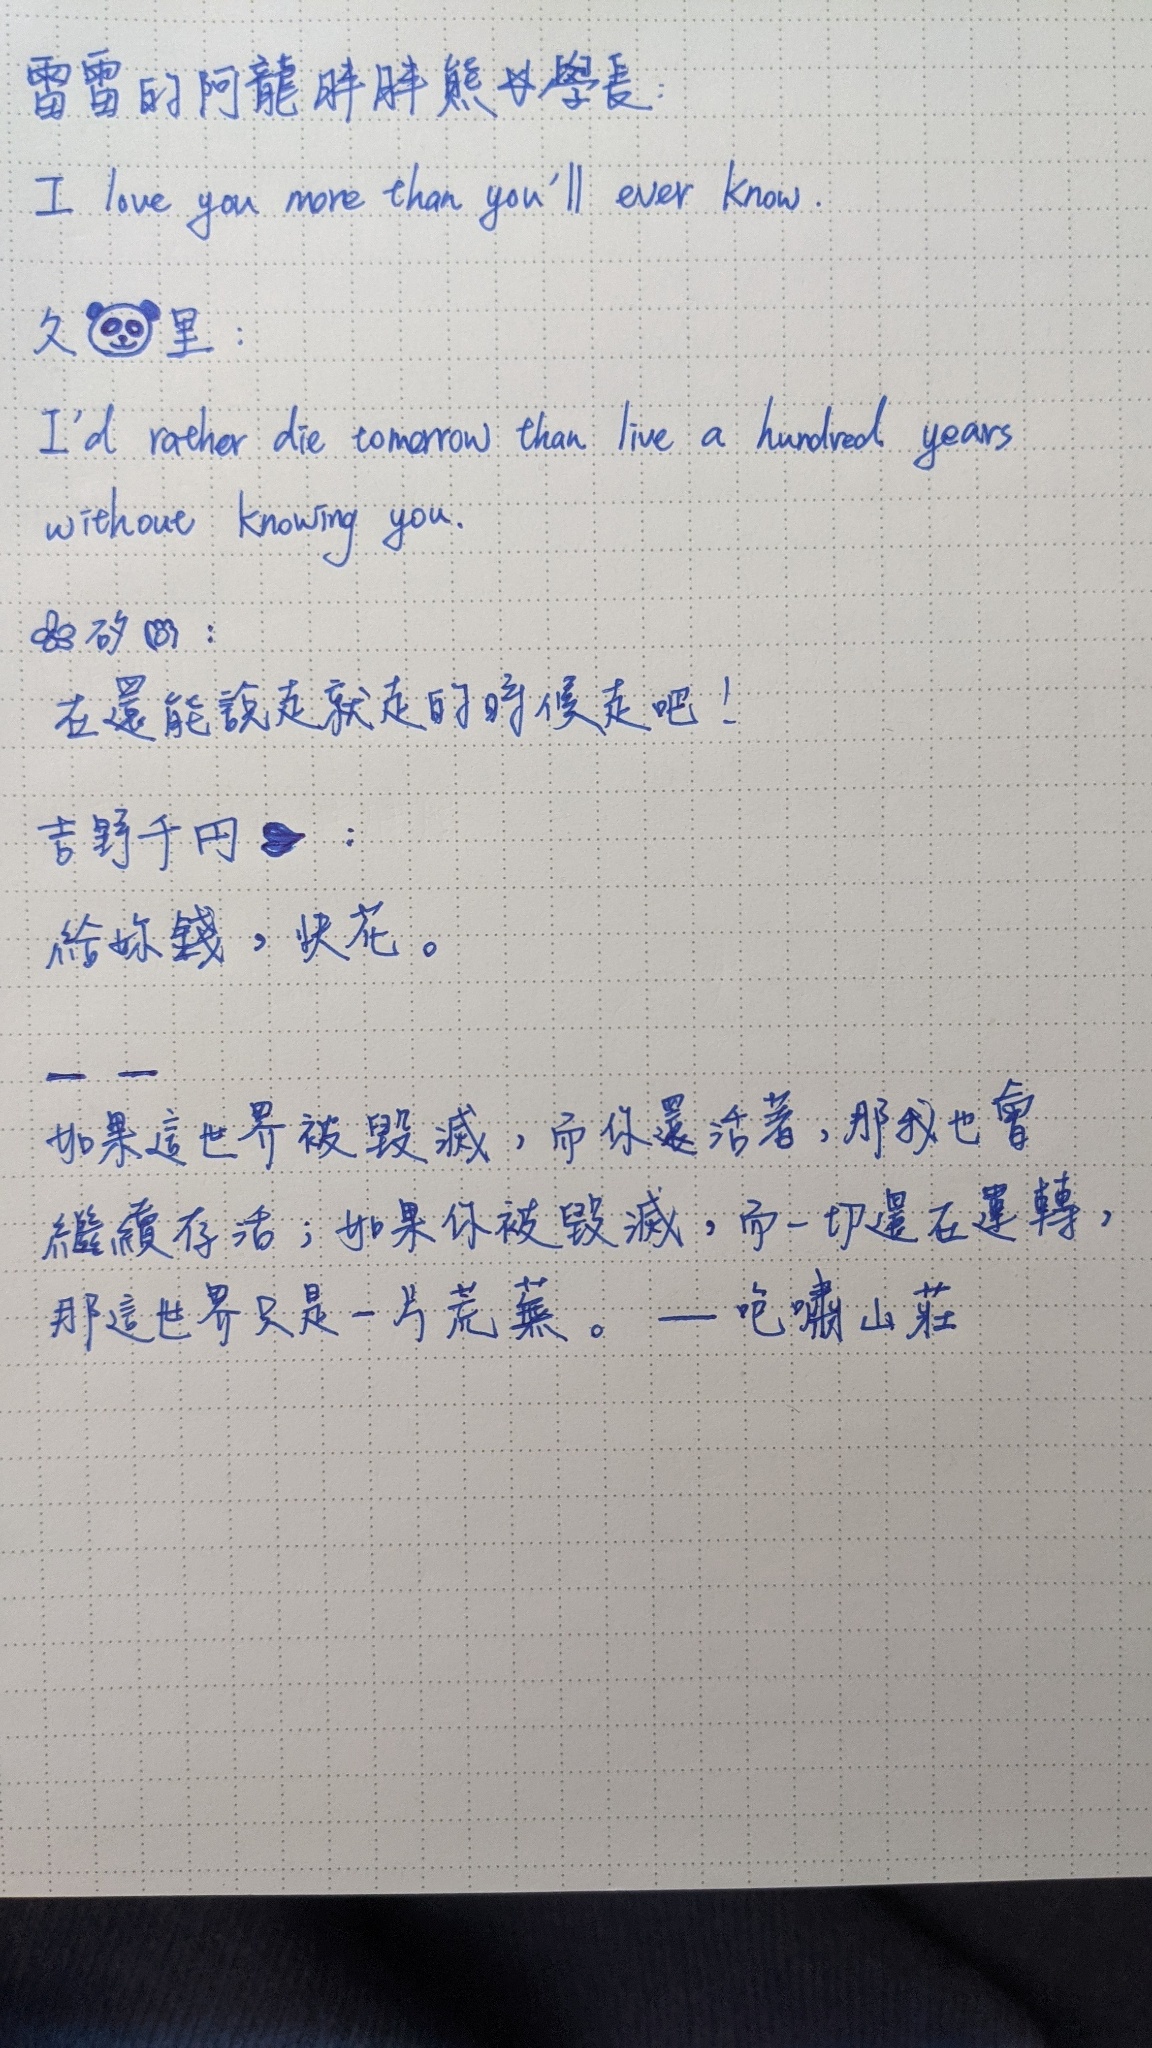 雷雷的阿龍胖胖熊女學長:
I love you more than you'll ever know.
久里:
I'd rather die tomorrow than live a hundred years
without knowing you.
矽:
在還能說走就走的時候走吧!
吉野千円:
給妳錢,快花。
— —
如果這世界被毀滅,而你還活著,那我也會
繼續存活;如果你被毀滅,而一切還在運轉,
那這世界只是一片荒蕪。 —咆嘯山莊